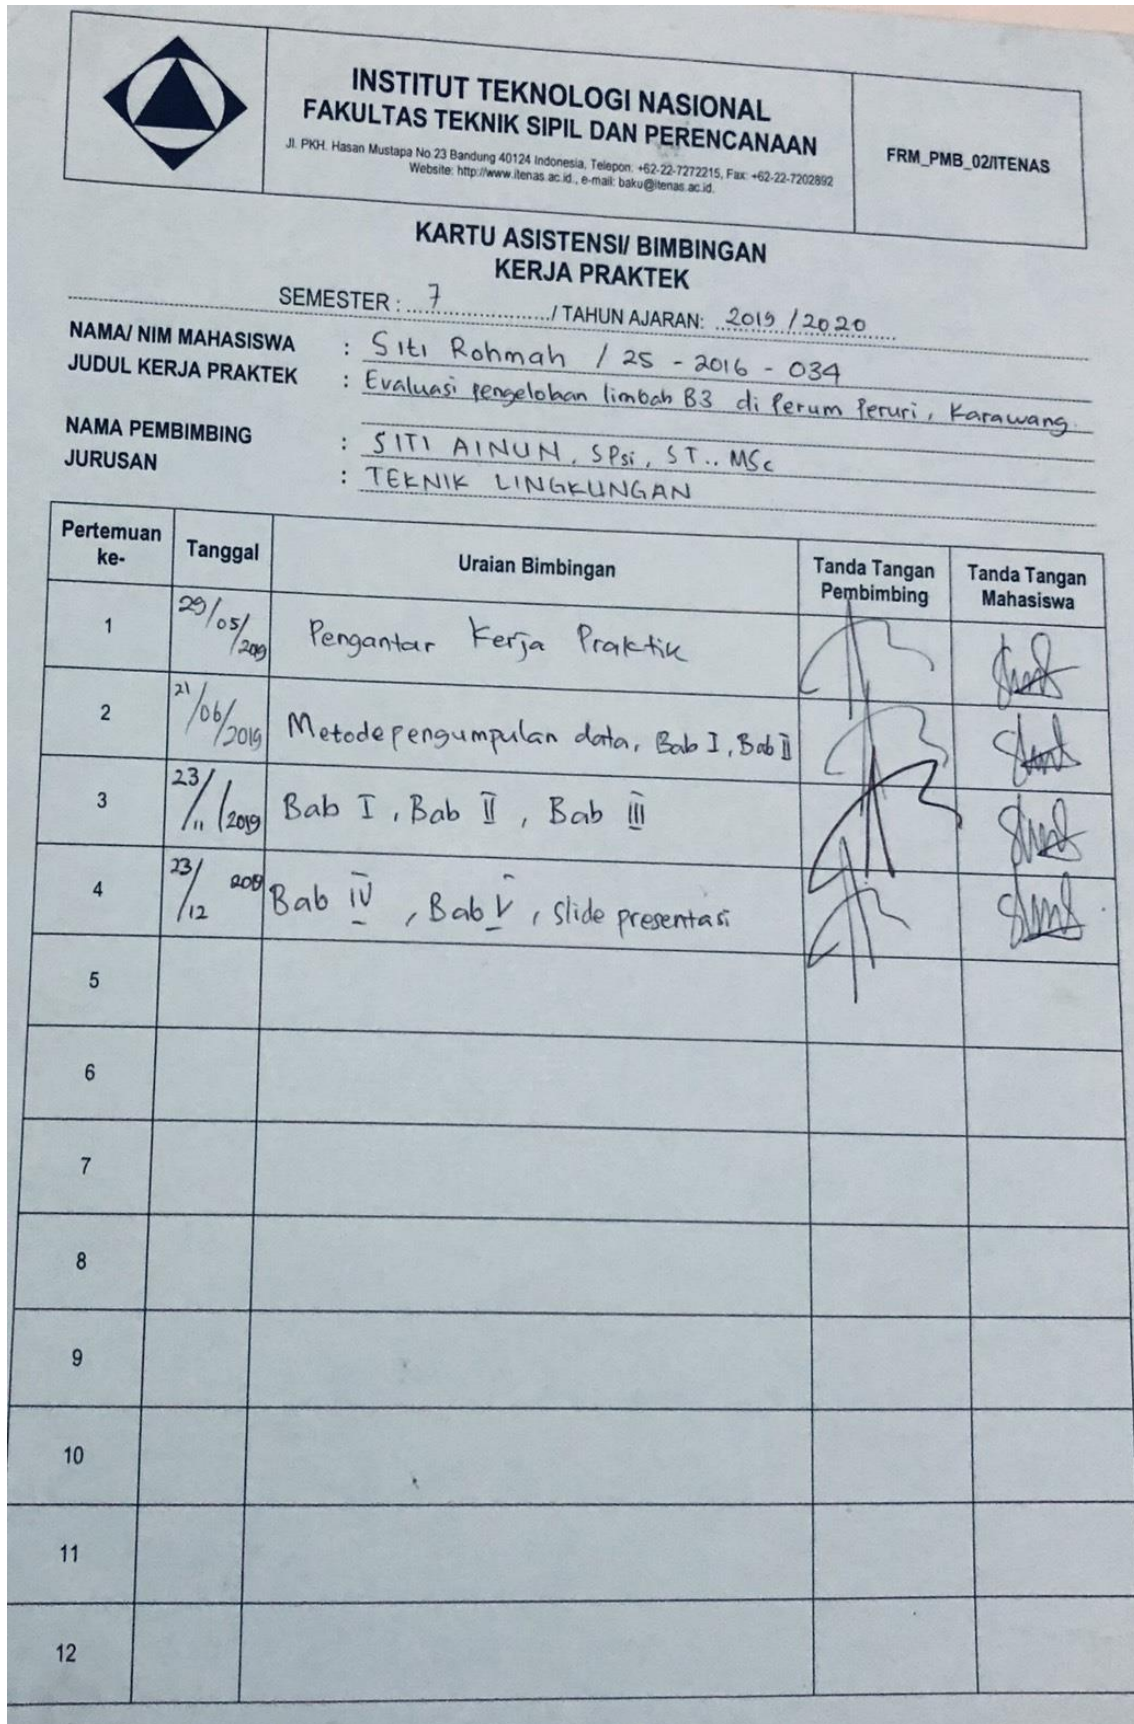 INSTITUT TEKNOLOGI NASIONAL
FAKULTAS TEKNIK SIPIL DAN PERENCANAAN
Jl. PKH. Hasan Mustapa No.23 Bandung 40124 Indonesia, Telepon: +62-22-7272215, Fax: +62-22-7202892
Website: http://www.itenas.ac.id., e-mail: baku@itenas.ac.id.
FRM_PMB_02/ITENAS
KARTU ASISTENSI/ BIMBINGAN
KERJA PRAKTEK
SEMESTER : 7 / TAHUN AJARAN: 2019 / 2020
NAMA/ NIM MAHASISWA : Siti Rohmah / 25 - 2016 - 034
JUDUL KERJA PRAKTEK : Evaluasi pengelolaan limbah B3 di Perum Peruri, Karawang
NAMA PEMBIMBING : SITI AINUN, SPsi, ST., MSc
JURUSAN : TEKNIK LINGKUNGAN
Pertemuan ke- Tanggal Uraian Bimbingan Tanda Tangan Pembimbing Tanda Tangan Mahasiswa
1 29/05/2019 Pengantar Kerja Praktik
2 21/06/2019 Metode pengumpulan data, Bab I, Bab II
3 23/11/2019 Bab I, Bab II, Bab III
4 23/12 2019 Bab IV, Bab V, slide presentasi
5
6
7
8
9
10
11
12